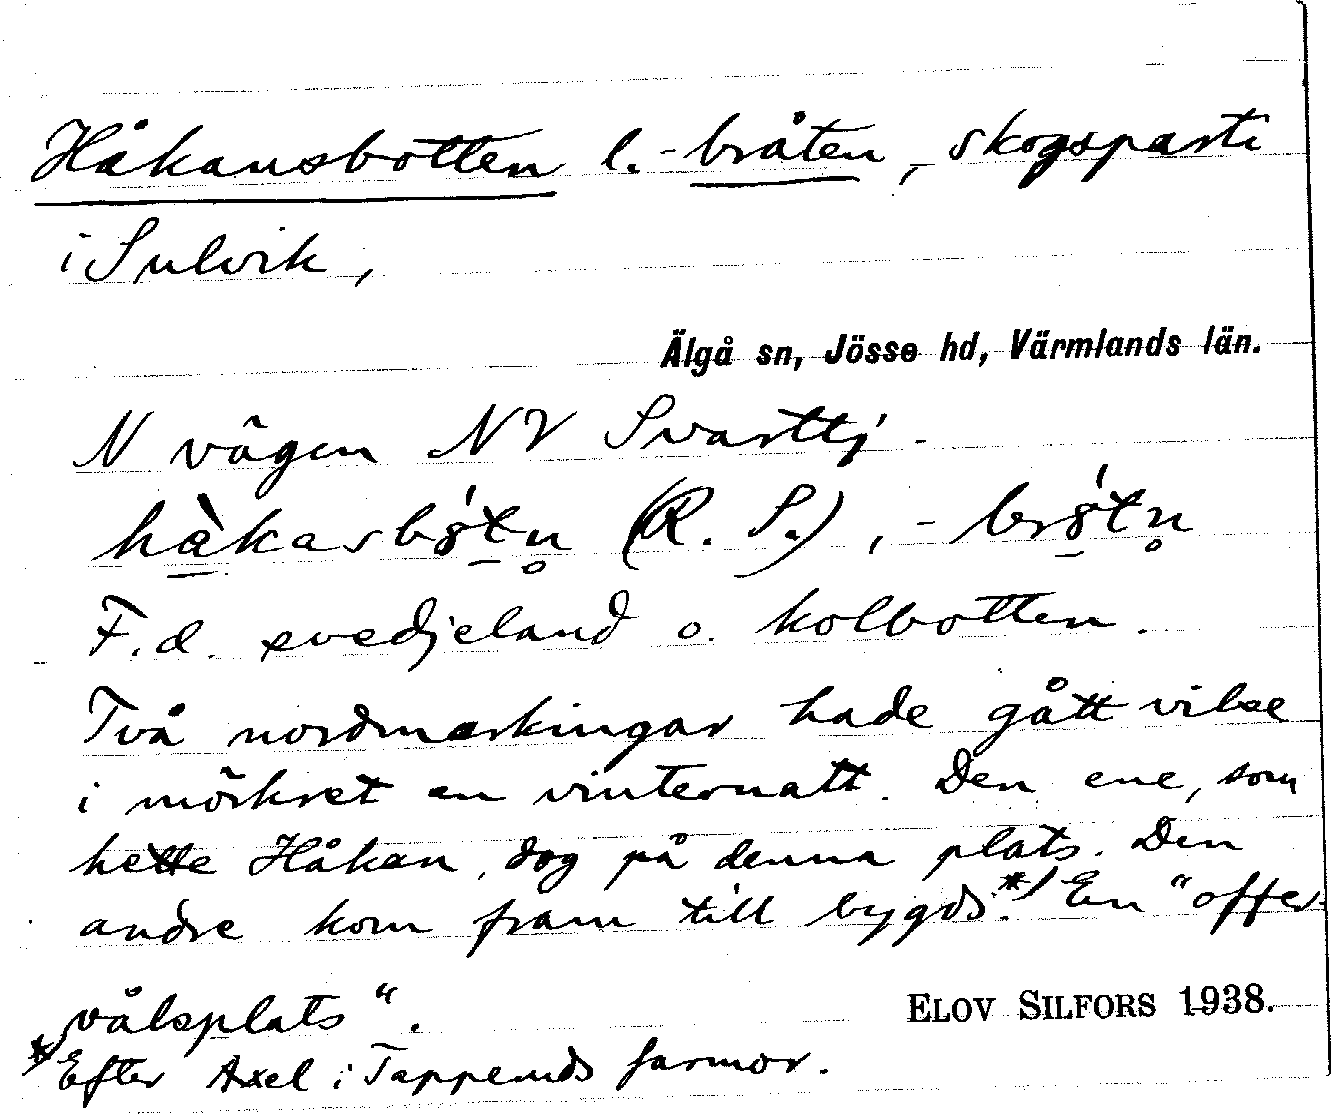 Håkansbotten l. -bråten, skogsparti
i Sulvik,
Älgå sn, Jösse hd, Värmlands län.
N vägen NV Svarttj.
hàkasbótn (R. S.), -brótn
F.d. svedjeland o. kolbotten.
Två nordmarkingar hade gått vilse
i mörkret en vinternatt. Den ene, som
hette Håkan, dog på denna plats. Den
andre kom fram till bygds.*) En "offer-
vålsplats".
ELOV SILFORS 1938.
*) Efter Axel i Tappemds farmor.